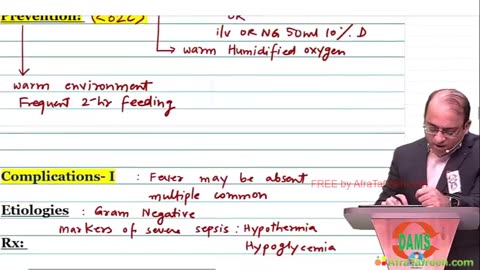 Prevention:
OR
i/v OR NG 50ml 10% D
→ warm Humidified oxygen
warm environment
Frequent 2-hr feeding
Complications- I : Fever may be absent
multiple common
FREE by AfraTafreeh.com
Etiologies : Gram Negative
markers of severe sepsis : Hypothermia
Hypoglycemia
Rx:
DAMS
AfraTafreeh.com